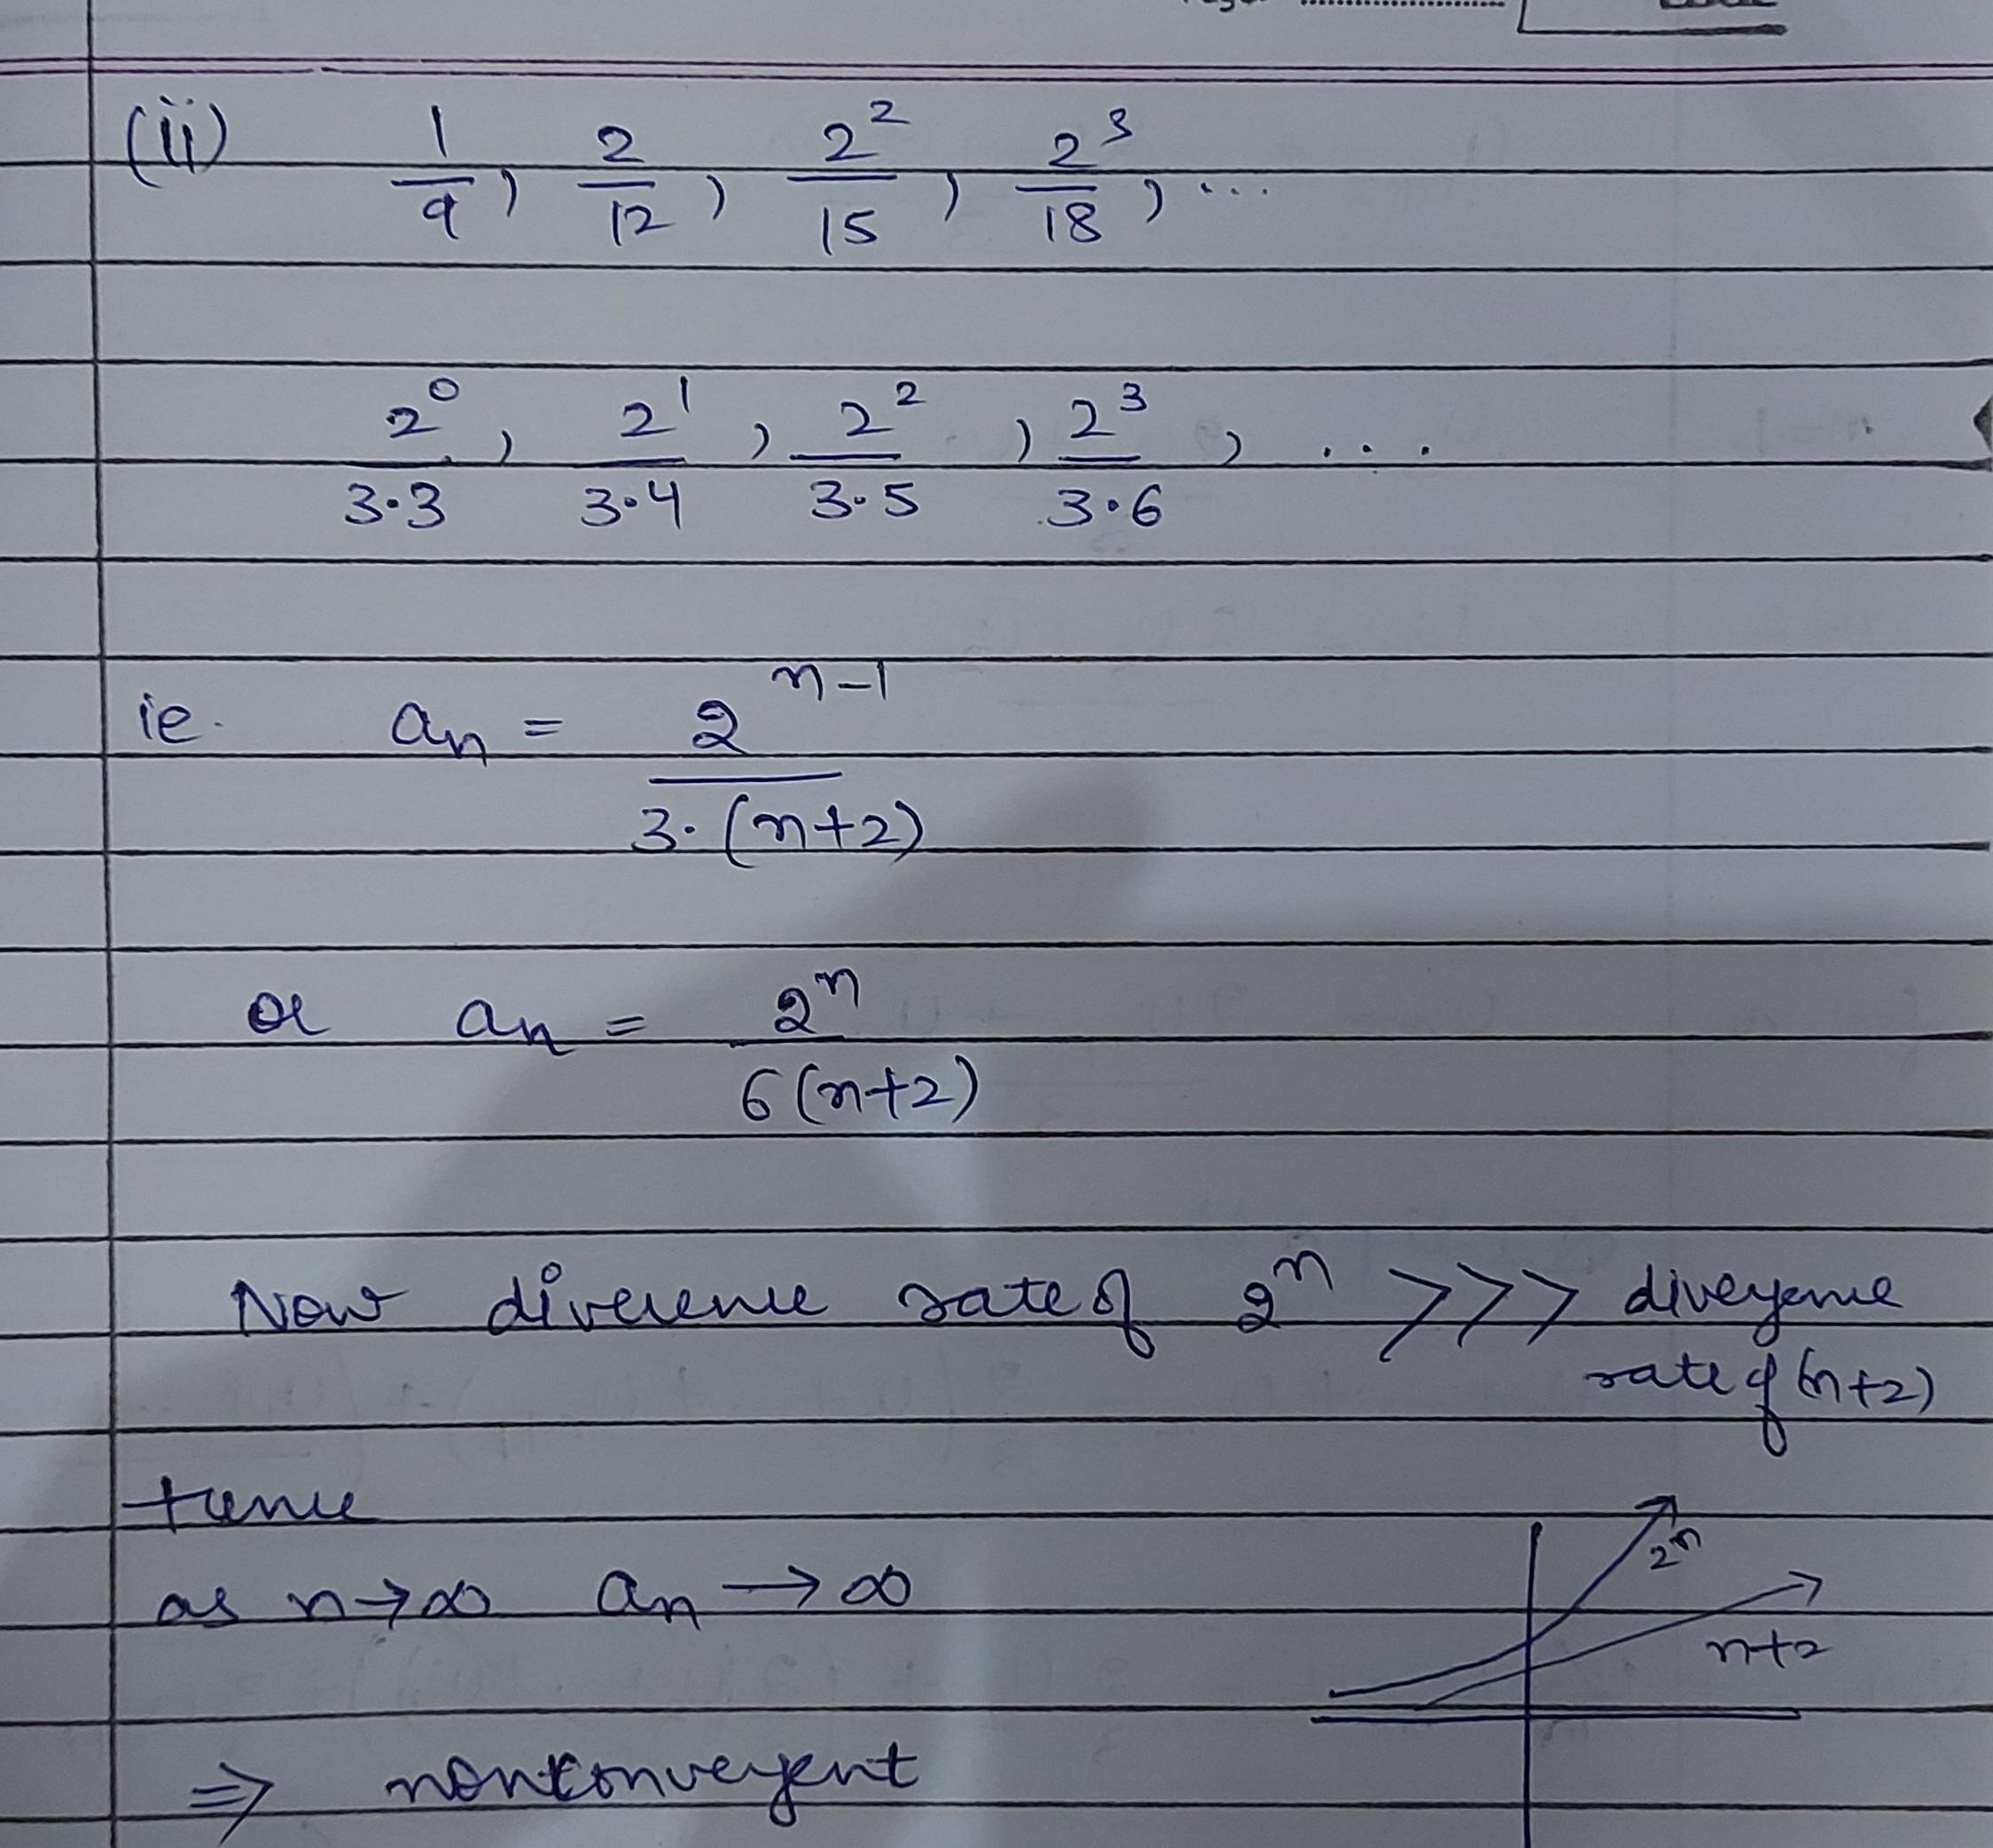 (ii) 1/9, 2/12, 2²/15, 2³/18, ...
2⁰/3·3, 2¹/3·4, 2²/3·5, 2³/3·6, ...
ie. aₙ = 2ⁿ⁻¹/3·(n+2)
or aₙ = 2ⁿ/6(n+2)
Now diverence rate of 2ⁿ >>> divergence
rate of (n+2)
Hence
2ⁿ
as n→∞ aₙ → ∞
n+2
⇒ nonconvergent